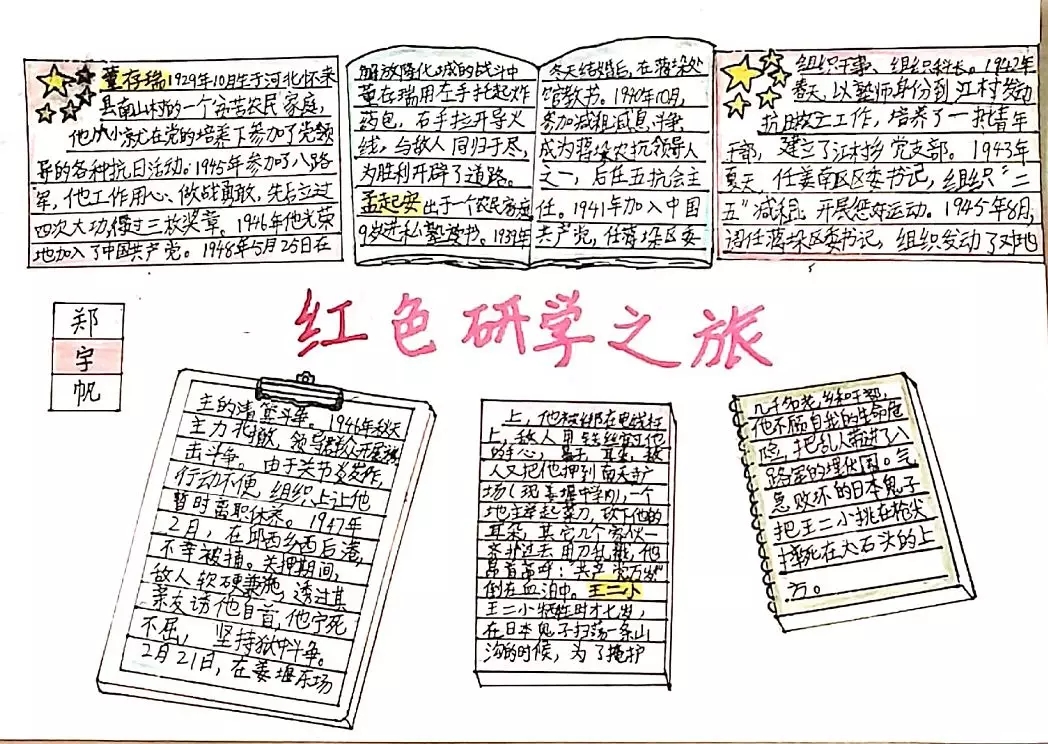 董存瑞1929年10月生于河北怀来
县南山村的一个贫苦农民家庭,
他从小就在党的培养下参加了党领
导的各种抗日活动.1945年参加了八路
军,他工作用心、做战勇敢,先后立过
四次大功,得过三枚奖章。1946年他光荣
地加入了中国共产党。1948年5月25日在
解放隆化城的战斗中
董存瑞用左手托起炸
药包,右手拉开导火
线,与敌人同归于尽,
为胜利开辟了道路。
孟起安出于一个农民家庭
9岁进私塾读书.1939年
冬天结婚后,在蒋垛处
管教书。1940年10月,
参加减租减息斗争,
成为蒋垛农抗领导人
之一,后任五抗会主
任。1941年加入中国
共产党,任蒋垛区委
组织干事、组织科长。1942年
春天,以塾师身份到江村发动
抗日救亡工作,培养了一批青年
干部,建立了江村乡党支部。1943年
夏天,任姜南区区委书记,组织“二
五”减租,开展运动。1945年8月,
调任蒋垛区委书记,组织发动了对地
红色研学之旅
郑
宇
帆
主的清算斗争。1946年秋天
主力北撤,领导群众开展游
击斗争。由于关节炎发作,
行动不便,组织上让他
暂时离职休养。1947年
2月,在邱西乡西后港,
不幸被捕。关押期间,
敌人软硬兼施,透过其
亲友诱他自首,他宁死
不屈,坚持狱中斗争。
2月21日,在姜堰东场
上,他被绑在电线杆
上,敌人用铁丝穿过他
的手心,鼻子,耳朵,敌
人又把他押到南天寺广
场(现姜堰中学内),一个
地主举起菜刀,砍下他的
耳朵,其它几个家伙一
齐拥过去用刀乱戳,他
昂首高呼:“共产党万岁”
倒在血泊中。王二小
王二小牺牲时才七岁,
在日本鬼子扫荡一条山
沟的时候,为了掩护
几千名老乡和干部,
他不顾自我的生命危
险,把乱人带进了八
路军的埋伏圈。气
急败坏的日本鬼子
把王二小挑在枪尖
摔死在大石头的上
方。